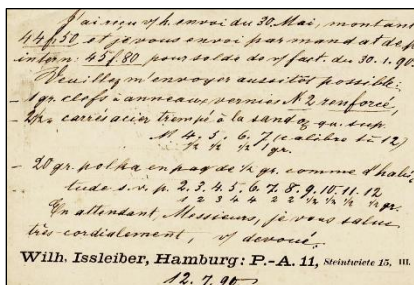 J'ai reçu v/h. envoi du 30. Mai, montant
44f.50 et je vous envoi par mandat de p.
intern: 45f.80 pour solde de v/fact. du 30.1.90.
Veuillez m'envoyer aussitôt possible:
- 1 gr. clefs à anneaux vernies N 2 renforcé,
- carrés acier trempé à la sand qu. sup.
M 4. 5. 6. 7 (calibre 12)
½ ½ ½ 1 gr.
- 20 gr. polka en paq de ½ gr. comme d'habi
tude s.v.p. 2. 3. 4. 5. 6. 7. 8. 9. 10. 11. 12
1 2 3 4 4 2 2 ½ ½ ½ ½ gr.
En attendant, Messieurs, je vous salue
très-cordialement, v/ devoué.
Wilh. Issleiber, Hamburg: P.-A. 11, Steintwiete 15, III.
12.7.90